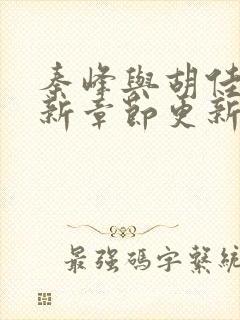 秦峰與胡佳
新章節更新
最強碼字繫統